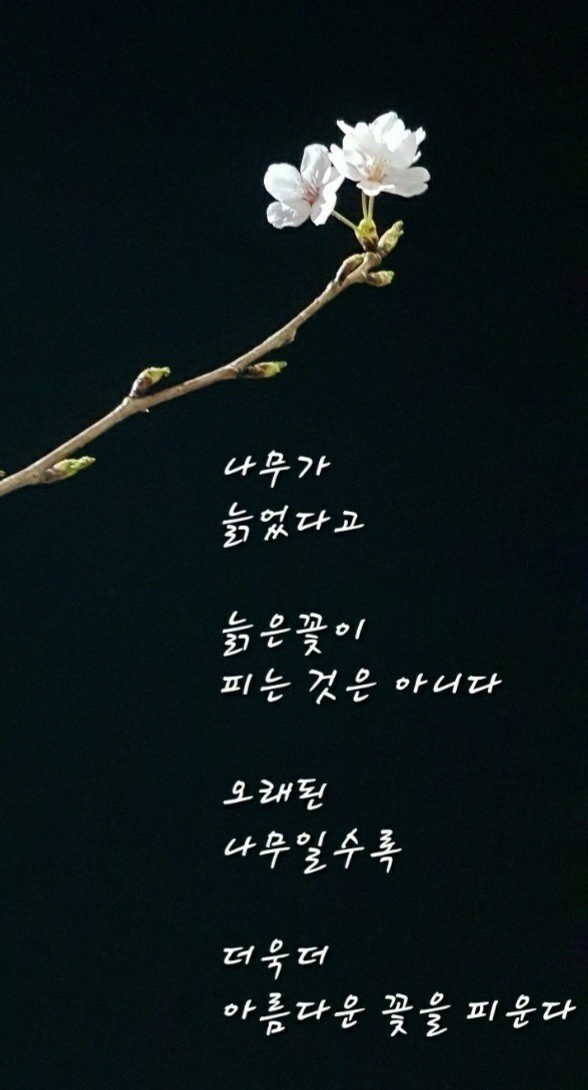 나무가
늙었다고
늙은꽃이
피는 것은 아니다
오래된
나무일수록
더욱더
아름다운 꽃을 피운다